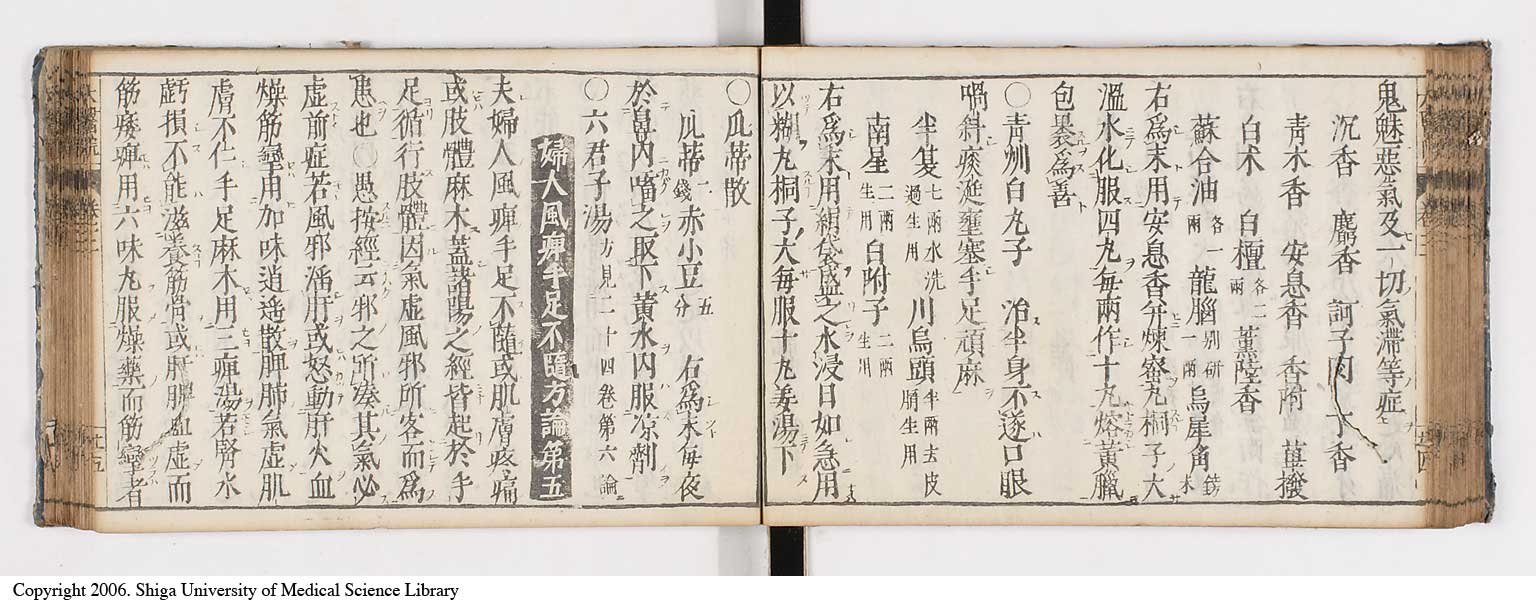 鬼魅惡氣及一切氣滯等症
沉香 麝香 訶子肉 丁香
青木香 安息香 香附 蓽撥
白术 白檀各二兩 薰陸香
蘇合油各一兩 龍腦別研一兩 烏犀角鎊末
右爲末用安息香并煉蜜丸桐子大
溫水化服四丸每兩作十丸熔黃臘
包裹爲善
〇青州白丸子 治半身不遂口眼
喎斜痰涎壅塞手足頑麻
半夏七兩水洗過生用 川烏頭半兩去皮臍生用
南星二兩生用 白附子二兩生用
右爲末用絹袋盛之水浸日如急用
以糊丸桐子大每服十丸姜湯下
〇瓜蒂散
瓜蒂一錢 赤小豆五分 右爲末每夜
於鼻內㗜之取下黃水內服凉劑
〇六君子湯方見二十四卷第六論
婦人風痹手足不隨方論第五
夫婦人風痹手足不隨或肌膚疼痛
或肢體麻木蓋諸陽之經皆起於手
足循行肢體因氣虛風邪所客而爲
患也〇愚按經云邪之所湊其氣必
虛前症若風邪淫肝或怒動肝火血
燥筋攣用加味逍遙散脾肺氣虛肌
膚不仁手足麻木用三痹湯若腎水
虧損不能滋養筋骨或肝脾血虛而
筋痿痹用六味丸服燥藥而筋攣者
Copyright 2006. Shiga University of Medical Science Library